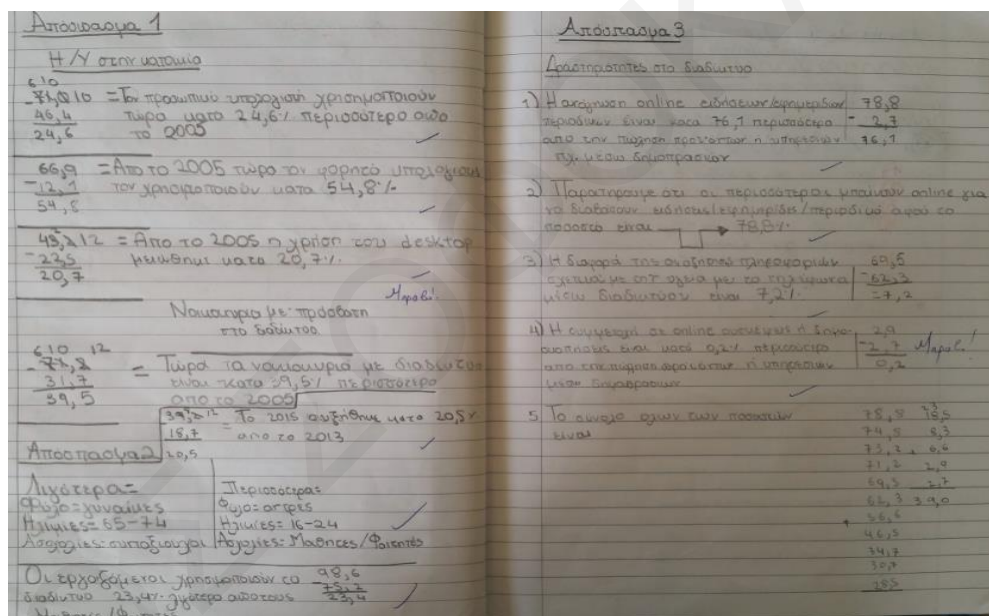 Απόσπασμα 1
Η/Υ στην κατοικία
6 10
-71,0 10 = Τον προσωπικό υπολογιστή χρησιμοποιούν
46,4 τώρα κατα 24,6% περισσότερο απο
24,6 το 2005
66,9 = Απο το 2005 τώρα τον φορητό υπολογιστή
-12,1 τον χρησιμοποιούν κατα 54,8%
54,8
43,2 12 = Απο το 2005 η χρήση του desktop
-22,5 μειώθηκε κατα 20,7%
20,7
Μπράβο!
Νοικοκυριά με πρόσβαση
στο διαδίκτυο
6 10 12
-71,2 = Τώρα τα νοικοκυριά με διαδίκτυο
31,7 είναι κατα 39,5% περισσότερα
39,5 απο το 2005
39,2 12 = Το 2015 αυξήθηκε κατα 20,5%
18,7 απο το 2013
20,5
Απόσπασμα 2
Λιγότερα=
Φύλο=γυναίκες
Ηλικίες= 65-74
Ασχολίες=συνταξιούχοι
Περισσότερα=
Φύλο=άντρες
Ηλικίες= 16-24
Ασχολίες= Μαθητές/Φοιτητές
Οι εργαζόμενοι χρησιμοποιούν το 98,6
διαδίκτυο 23,4% λιγότερο από τους -75,2
23,4
Απόσπασμα 3
Δραστηριότητες στο διαδίκτυο
1) Η ανάγνωση online ειδήσεων/εφημερίδων 78,8
περιοδικών είναι κατα 76,1 περισσότερο - 2,7
απο την πώληση προϊόντων ή υπηρεσιών 76,1
πχ. μέσω δημοπρασιών
2) Παρατηρούμε ότι οι περισσότεροι μπαίνουν online για
να διαβάσουν ειδήσεις/εφημερίδες/περιοδικά αφού το
ποσοστό είναι 78,8%
3) Η διαφορά της αναζήτησης πληροφοριών 69,5
σχετικά με την υγεία με τα τηλεφωνα -62,3
μέσω διαδικτύου είναι 7,2% =7,2
4) Η συμμετοχή σε online 2,9
είναι κατά 0,2% περισσότερο -2,7
από την πώληση προϊόντων ή υπηρεσιών 0,2
μέσω δημοπρασιών
Μπράβο!
5 Το σύνολο όλων των ποσοστών
είναι
78,8 18,5
74,5 8,3
73,7 6,6
71,2 2,9
69,5 2,7
62,3 39,0
56,6
46,5
34,7
30,7